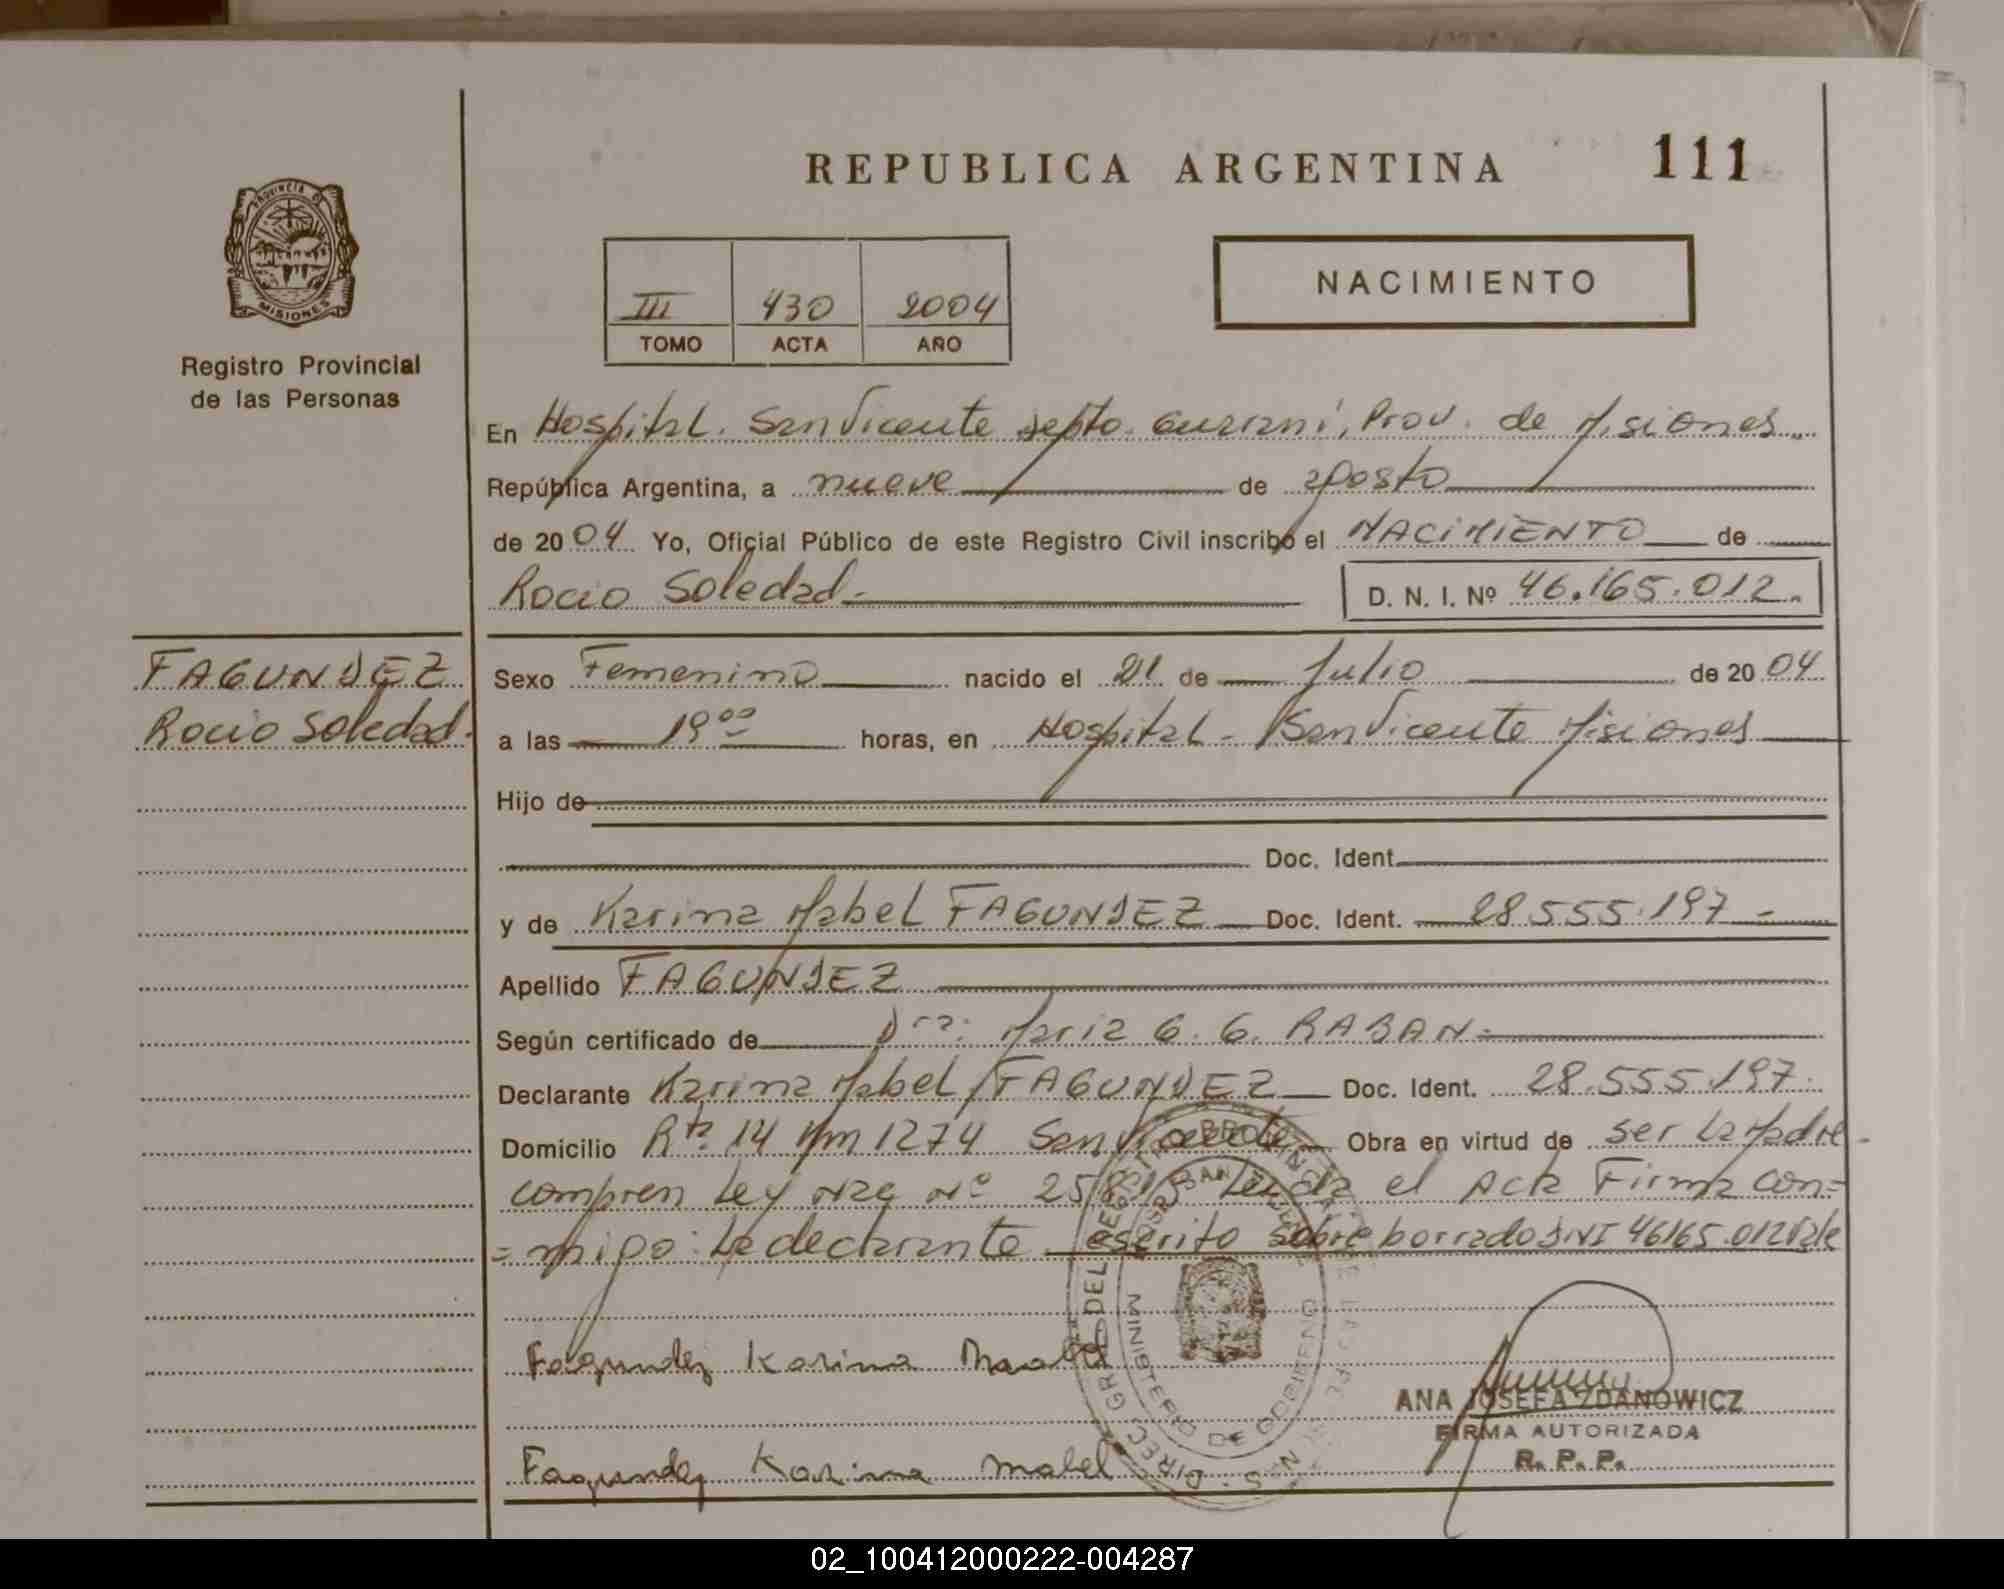 REPUBLICA ARGENTINA
111
PROVINCIA DE
MISIONES
Registro Provincial
de las Personas
III 430 2004
TOMO ACTA AÑO
NACIMIENTO
En Hospital. San Vicente depto. Guaraní, Prov. de Misiones
República Argentina, a nueve de agosto
de 2004 Yo, Oficial Público de este Registro Civil inscribo el NACIMIENTO de
Rocio Soledad.- D. N. I. Nº 46.165.012.
FAGUNDEZ
Rocio Soledad.
Sexo Femenino nacido el 21 de Julio de 2004
a las 19ºº horas, en Hospital - San Vicente Misiones
Hijo de
Doc. Ident.
y de Karina Mabel FAGUNDEZ Doc. Ident. 28.555.197-
Apellido FAGUNDEZ
Según certificado de Dra: Maria G. G. RABAN=
Declarante Karina Mabel FAGUNDEZ Doc. Ident. 28.555.197.
Domicilio Rta. 14 Km 1274 San Vicente Obra en virtud de ser la Madre-
compren Ley Nac Nº Leida el Acta Firma con=
=migo: La declarante escrito sobre borrado DNI 46165.012 Vale
Fagundez Karina Maabel
Fagundez Karina Mabel
MINISTERIO DE GOBIERNO
ANA JOSEFA ZDANOWICZ
FIRMA AUTORIZADA
R. P. P.
02_100412000222-004287